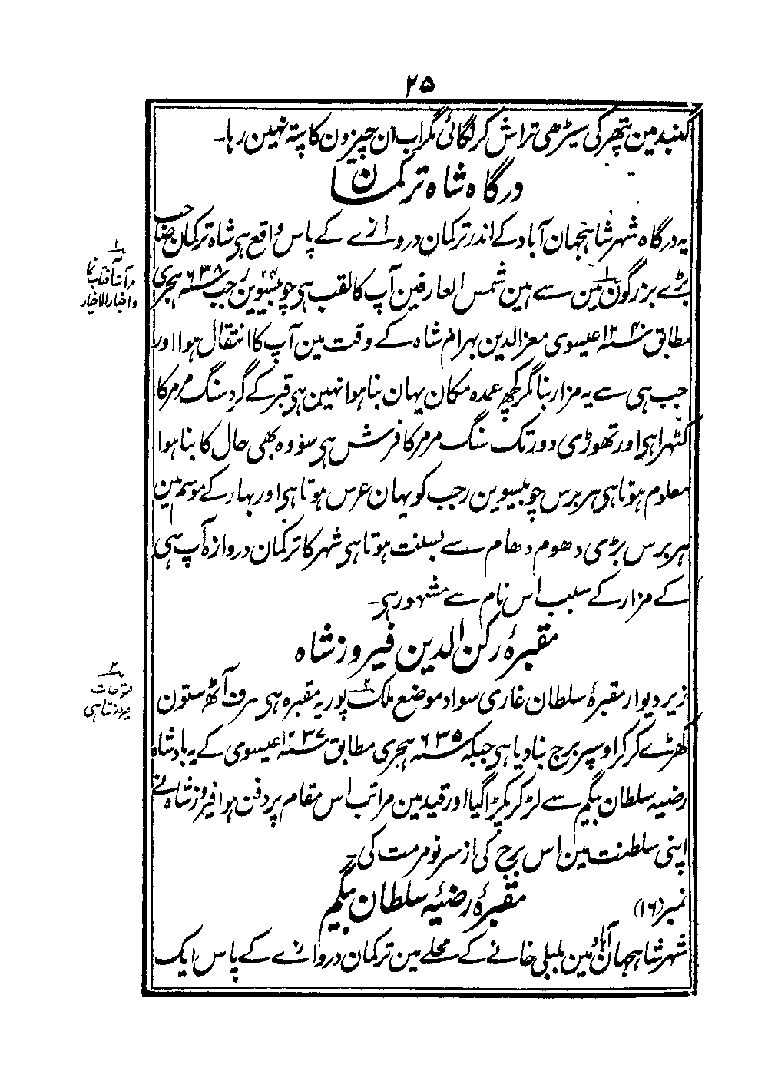 ۲۵
گنبد مین پتھر کی سیڑھی تراش کر لگائی مگر اب ان چیزون کا پتہ نہین رہا۔
درگاہ شاہ ترکمان
یہ درگاہ شہر شاہجہان آباد کے اندر ترکمان دروازے کے پاس واقع ہی شاہ ترکمان صاحب
بڑے بزرگون مین سے ہین شمس العارفین آپ کا لقب ہی چوبیسوین رجب ۶۳۸ ہجری
مطابق ۱۲۴۰ عیسوی معزالدین بہرام شاہ کے وقت مین آپ کا انتقال ہوا اور
جب ہی سے یہ مزار بنا مگر کچھ عمدہ مکان یہان بنا ہوا نہین ہی قبر کے گرد سنگ مرمر کا
کٹہرا ہی اور تھوڑی دور تک سنگ مرمر کا فرش ہی سو وہ بھی حال کا بنا ہوا
معلوم ہوتا ہی ہر برس چوبیسوین رجب کو یہان عرس ہوتا ہی اور بہار کے موسم مین
ہر برس بڑی دھوم دھام سے بسنت ہوتا ہی شہر کا ترکمان دروازہ آپ ہی
کے مزار کے سبب اس نام سے مشہور ہی۔
۱
مرآت آفتاب نما
و اخبار الاخیار
مقبرۂ رکن الدین فیروز شاہ
زیر دیوار مقبرۂ سلطان غاری سواد موضع ملک پور یہ مقبرہ ہی صرف آٹھ ستون
کھڑے کر کر اوسپر برج بنا دیا ہی جبکہ ۶۳۵ ہجری مطابق ۱۲۳۷ عیسوی کے یہ بادشاہ
رضیہ سلطان بیگم سے لڑ کر پکڑا گیا اور قید مین مرا تب اس مقام پر دفن ہوا فیروز شاہ نے
اپنی سلطنت مین اس برج کی از سر نو مرمت کی۔
۲
فتوحات
فیروز شاہی
مقبرۂ رضیہ سلطان بیگم
نمبر (۱۶)
شہر شاہجہان آباد مین بلبلی خانے کے محلے مین ترکمان دروازے کے پاس ایک